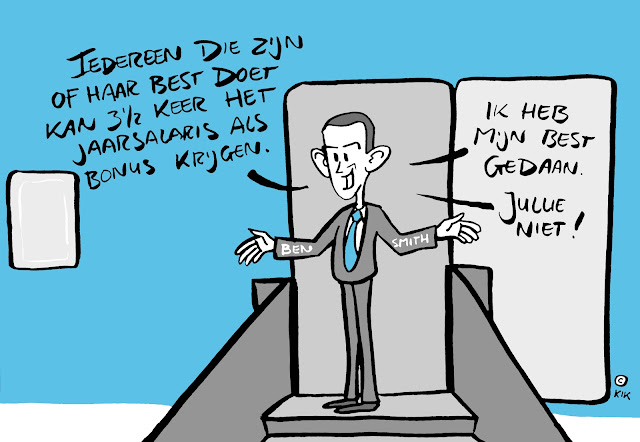 IEDEREEN DIE ZIJN
OF HAAR BEST DOET
KAN 3½ KEER HET
JAARSALARIS ALS
BONUS KRIJGEN.
IK HEB
MIJN BEST
GEDAAN.
JULLIE
NIET!
BEN
SMITH
©
KIK